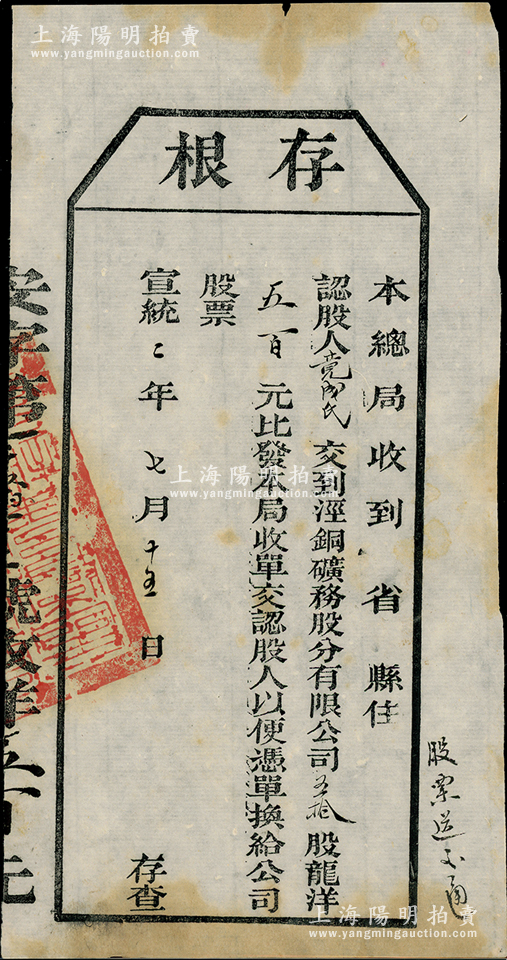 上海陽明拍賣
www.yangmingauction.com
存根
本總局收到 省 縣住
認股人竟成氏 交到涇銅礦務股分有限公司五拾股龍洋
五百 元比發本局收單交認股人以便憑單換給公司
股票
宣統二年 七月十五日
存查
股票送交
安字第 號收洋五百元
上海陽明拍賣
www.yangmingauction.com
上海陽明拍賣
www.yangmingauction.com